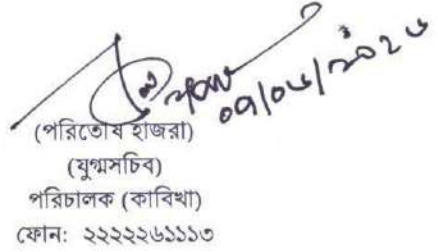 ০৭/০৬/২০২৬
(পরিতোষ হাজরা)
(যুগ্মসচিব)
পরিচালক (কাবিখা)
ফোন: ২২২২২৬১১১৩